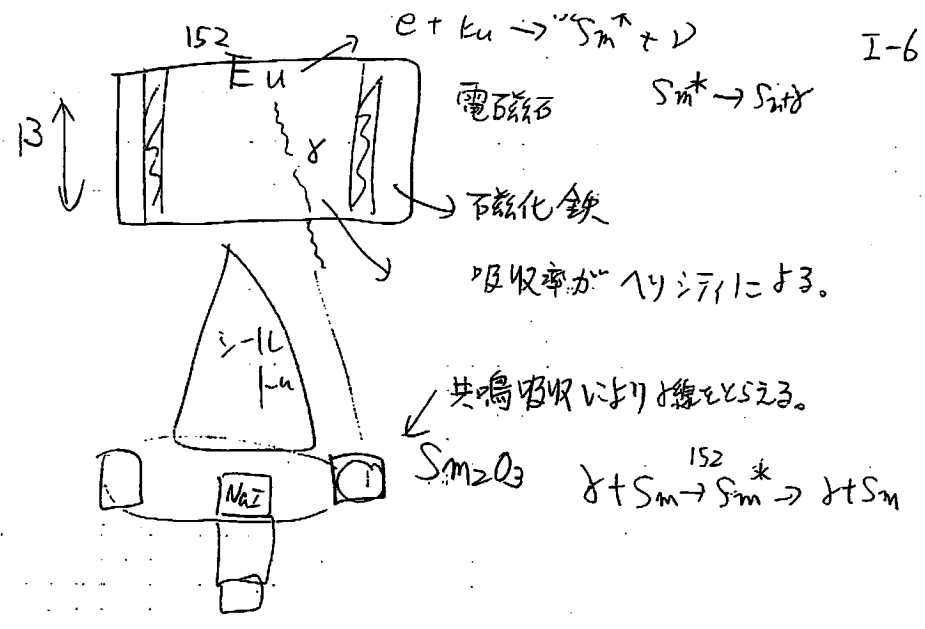 I-6
152
Eu
e + Eu → ¹⁵²Sm* + ν
電磁石
Sm* → Sm+γ
B
γ
磁化鉄
吸収率が ヘリシティによる。
シールド
共鳴吸収によりγ線をとらえる。
Sm2O3
NaI
152
γ+Sm→Sm*→γ+Sm